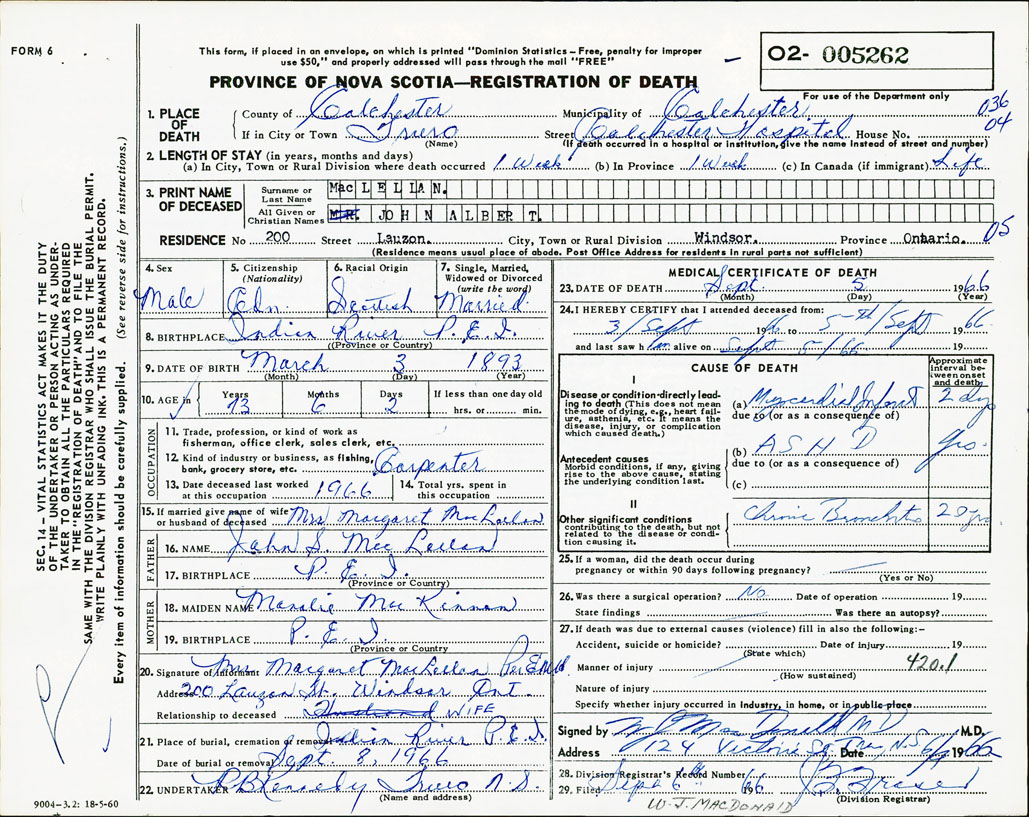 FORM 6
This form, if placed in an envelope, on which is printed "Dominion Statistics – Free, penalty for improper
use $50," and properly addressed will pass through the mail "FREE"
02- 005262
PROVINCE OF NOVA SCOTIA—REGISTRATION OF DEATH
For use of the Department only
1. PLACE OF DEATH County of Colchester Municipality of Colchester 036
If in City or Town Truro (Name) Street Colchester Hospital House No. 04
(If death occurred in a hospital or institution, give the name instead of street and number)
2. LENGTH OF STAY (in years, months and days)
(a) In City, Town or Rural Division where death occurred 1 Week (b) In Province 1 Week (c) In Canada (if immigrant) Life
3. PRINT NAME OF DECEASED Surname or Last Name MacLELLAN.
All Given or Christian Names MR. JOHN ALBERT.
RESIDENCE No 200 Street Lauzon. City, Town or Rural Division Windsor. Province Ontario. 05
(Residence means usual place of abode. Post Office Address for residents in rural parts not sufficient)
4. Sex Male
5. Citizenship (Nationality) Cdn
6. Racial Origin Scottish
7. Single, Married, Widowed or Divorced (write the word) Married
8. BIRTHPLACE Indian River P.E.I.
(Province or Country)
9. DATE OF BIRTH March 3 1893
(Month) (Day) (Year)
10. AGE in Years 73 Months 6 Days 2 If less than one day old hrs. or min.
OCCUPATION
11. Trade, profession, or kind of work as
fisherman, office clerk, sales clerk, etc.
12. Kind of industry or business, as fishing,
bank, grocery store, etc. Carpenter
13. Date deceased last worked at this occupation 1966
14. Total yrs. spent in this occupation
15. If married give name of wife
or husband of deceased Mrs Margaret MacLellan
FATHER
16. NAME John S. MacLellan
17. BIRTHPLACE P.E.I.
(Province or Country)
MOTHER
18. MAIDEN NAME MacKinnon
19. BIRTHPLACE P.E.I.
(Province or Country)
20. Signature of informant Mrs Margaret MacLellan Per
Address 200 Lauzon St. Windsor Ont.
Relationship to deceased Husband WIFE
21. Place of burial, cremation or removal Indian River P.E.I.
Date of burial or removal Sept. 8, 1966
22. UNDERTAKER Kennedy Truro N.S.
(Name and address)
MEDICAL CERTIFICATE OF DEATH
23. DATE OF DEATH Sept. 5 1966
(Month) (Day) (Year)
24. I HEREBY CERTIFY that I attended deceased from:
3/Sept 196 to 5th/Sept 1966
and last saw him alive on Sept 5/66 19
CAUSE OF DEATH
Approximate interval between onset and death
I
Disease or condition directly leading to death (This does not mean the mode of dying, e.g., heart failure, asthenia, etc. It means the disease, injury, or complication which caused death.)
(a) Myocardial Infarct 2 dys
due to (or as a consequence of)
Antecedent causes
Morbid conditions, if any, giving rise to the above cause, stating the underlying condition last.
(b) ASHD yrs.
due to (or as a consequence of)
(c)
II
Other significant conditions
contributing to the death, but not related to the disease or condition causing it.
Chronic Bronchitis 20 yrs
25. If a woman, did the death occur during
pregnancy or within 90 days following pregnancy?
(Yes or No)
26. Was there a surgical operation? No Date of operation 19
State findings Was there an autopsy?
27. If death was due to external causes (violence) fill in also the following:–
Accident, suicide or homicide? Date of injury 19
(State which)
Manner of injury 420.1
(How sustained)
Nature of injury
Specify whether injury occurred in industry, in home, or in public place
Signed by MacDonald MD M.D.
Address 124 Victoria Sq. Truro, N.S. Date 6/9 1966
28. Division Registrar's Record Number
29. Filed Sept 6th 1966 Fraser
(Division Registrar)
W. J. MACDONALD
SEC. 14 – VITAL STATISTICS ACT MAKES IT THE DUTY
OF THE UNDERTAKER OR PERSON ACTING AS UNDER-
TAKER TO OBTAIN ALL THE PARTICULARS REQUIRED
IN THE "REGISTRATION OF DEATH" AND TO FILE THE
SAME WITH THE DIVISION REGISTRAR WHO SHALL ISSUE THE BURIAL PERMIT.
WRITE PLAINLY WITH UNFADING INK. THIS IS A PERMANENT RECORD.
Every item of information should be carefully supplied. (See reverse side for instructions.)
9004-3.2: 18-5-60